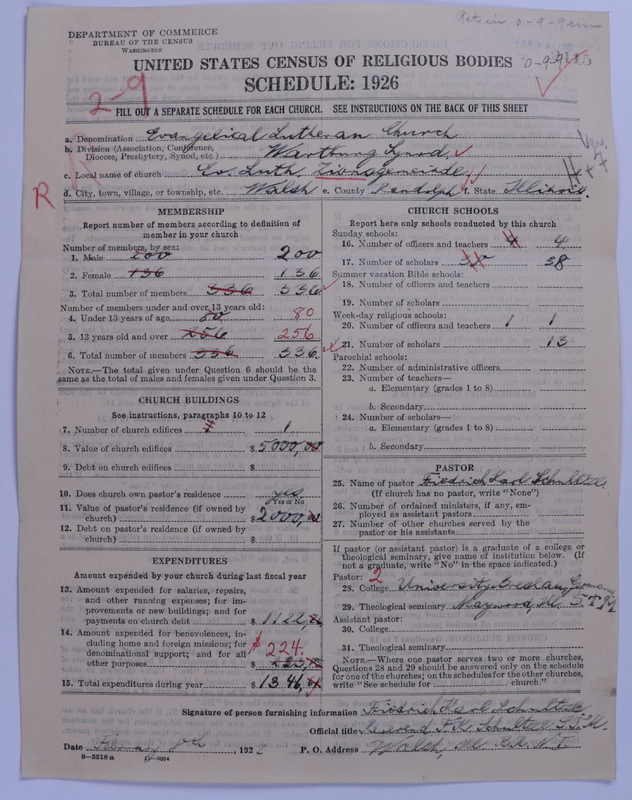 DEPARTMENT OF COMMERCE
BUREAU OF THE CENSUS
WASHINGTON
UNITED STATES CENSUS OF RELIGIOUS BODIES
SCHEDULE: 1926
2-9
FILL OUT A SEPARATE SCHEDULE FOR EACH CHURCH. SEE INSTRUCTIONS ON THE BACK OF THIS SHEET
a. Denomination Evangelical Lutheran Church
b. Division (Association, Conference, Diocese, Presbytery, Synod, etc.) Wartburg Synod
c. Local name of church Ev. Luth. Zionsgemeinde
R
d. City, town, village, or township, etc. Walsh e. County Randolph f. State Illinois.
MEMBERSHIP
Report number of members according to definition of member in your church
Number of members, by sex:
1. Male 200 200
2. Female 136 136
3. Total number of members 336 336
Number of members under and over 13 years old:
4. Under 13 years of age 80 80
5. 13 years old and over 256 256
6. Total number of members 336 336
NOTE.—The total given under Question 6 should be the same as the total of males and females given under Question 3.
CHURCH BUILDINGS
See instructions, paragraphs 10 to 12
7. Number of church edifices 1
8. Value of church edifices $5000,00
9. Debt on church edifices $
10. Does church own pastor's residence yes
Yes or No
11. Value of pastor's residence (if owned by church) $2000,00
12. Debt on pastor's residence (if owned by church) $
EXPENDITURES
Amount expended by your church during last fiscal year
13. Amount expended for salaries, repairs, and other running expenses; for improvements or new buildings; and for payments on church debt $1122,
14. Amount expended for benevolences, including home and foreign missions; for denominational support; and for all other purposes $224. $223,
15. Total expenditures during year $1346,
CHURCH SCHOOLS
Report here only schools conducted by this church
Sunday schools:
16. Number of officers and teachers 4 4
17. Number of scholars 38
Summer vacation Bible schools:
18. Number of officers and teachers
19. Number of scholars
Week-day religious schools:
20. Number of officers and teachers 1 1
21. Number of scholars 13
Parochial schools:
22. Number of administrative officers
23. Number of teachers—
a. Elementary (grades 1 to 8)
b. Secondary
24. Number of scholars—
a. Elementary (grades 1 to 8)
b. Secondary
PASTOR
25. Name of pastor Friedrich Karl Schultze
(If church has no pastor, write "None")
26. Number of ordained ministers, if any, employed as assistant pastors
27. Number of other churches served by the pastor or his assistants
If pastor (or assistant pastor) is a graduate of a college or theological seminary, give name of institution below. (If not a graduate, write "No" in the space indicated.)
Pastor: 2
28. College University Breslau, Germany
29. Theological seminary Maywood, Ill. S.T.M
Assistant pastor:
30. College
31. Theological seminary
NOTE.—Where one pastor serves two or more churches, Questions 28 and 29 should be answered only on the schedule for one of the churches; on the schedules for the other churches, write "See schedule for church."
Signature of person furnishing information Friedrich Karl Schultze
Official title Reverend F. K. Schultze S.T.M.
Date 192
P. O. Address Walsh, Ill
8—5518 a